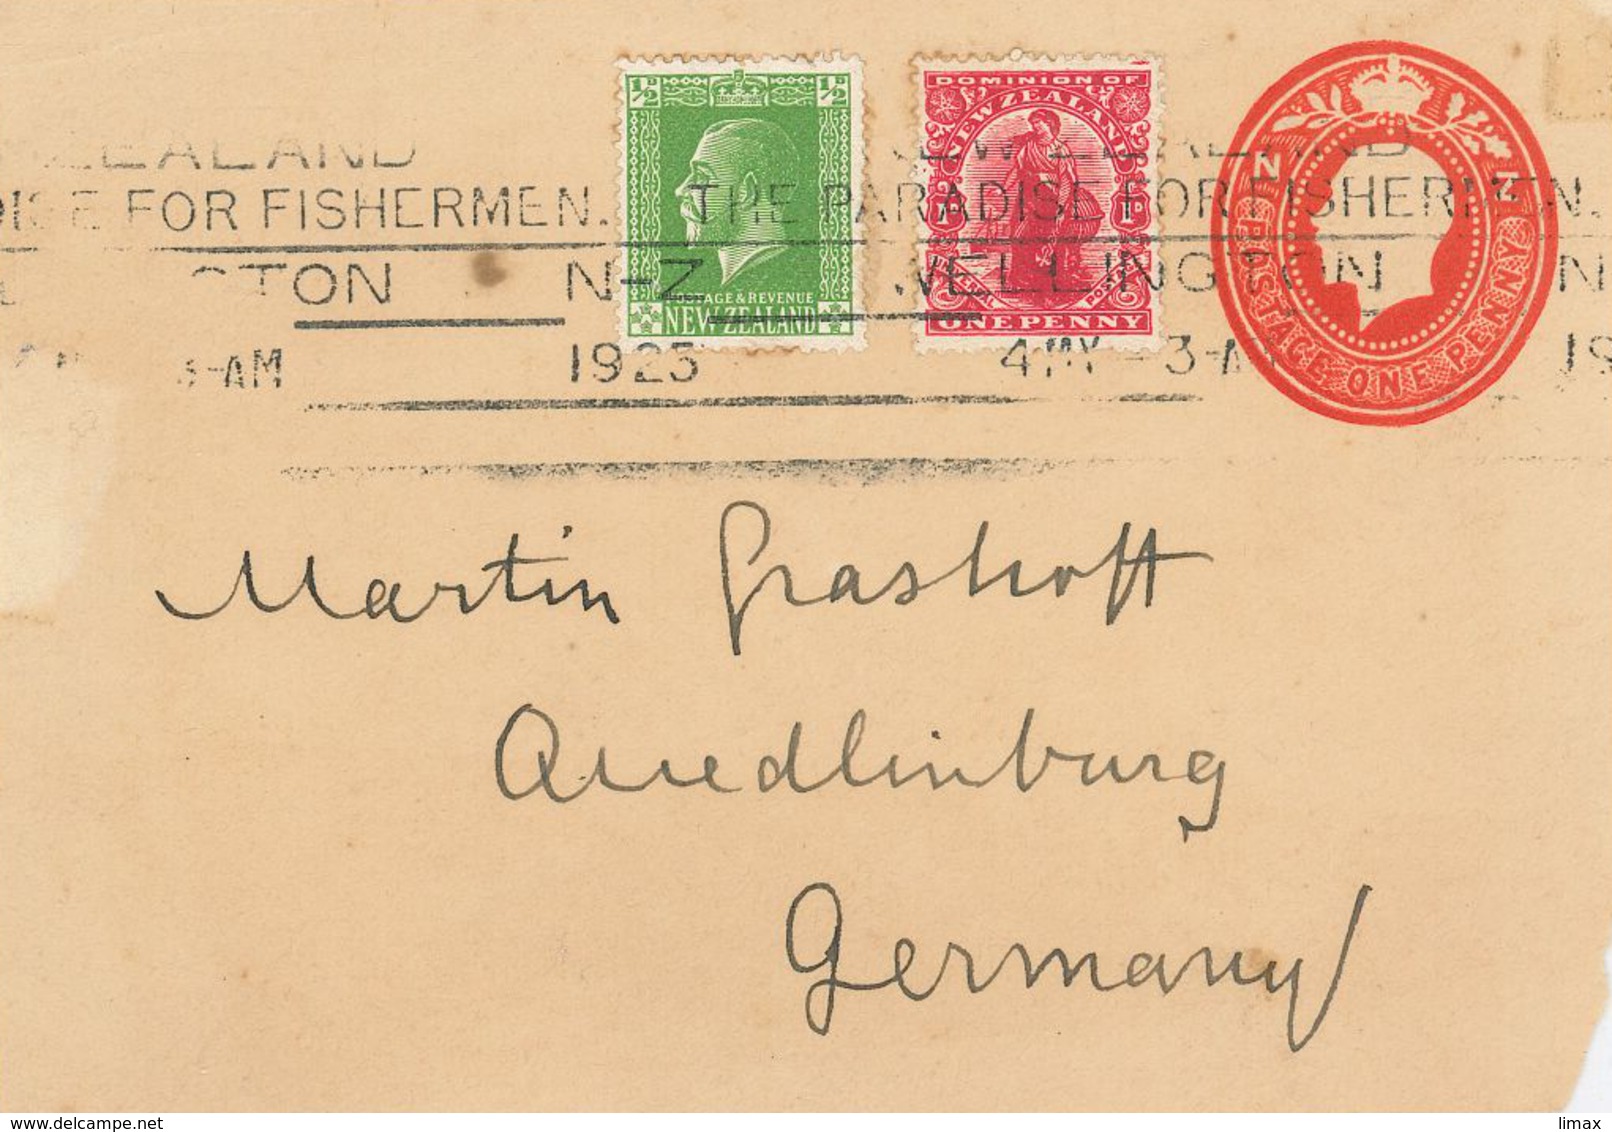 ½ ½
POSTAGE & REVENUE
NEW ZEALAND
DOMINION OF
NEW ZEALAND
1D 1D
UNIVERSAL POSTAGE
ONE PENNY
N Z
POSTAGE ONE PENNY
ZEALAND NEW ZEALAND
DISE FOR FISHERMEN. THE PARADISE FOR FISHERMEN.
GTON N-Z WELLINGTON N
3-AM 1925 4 MY - 3-A 19
Martin Grashoff
Quedlinburg
Germany
delcampe.net
limax